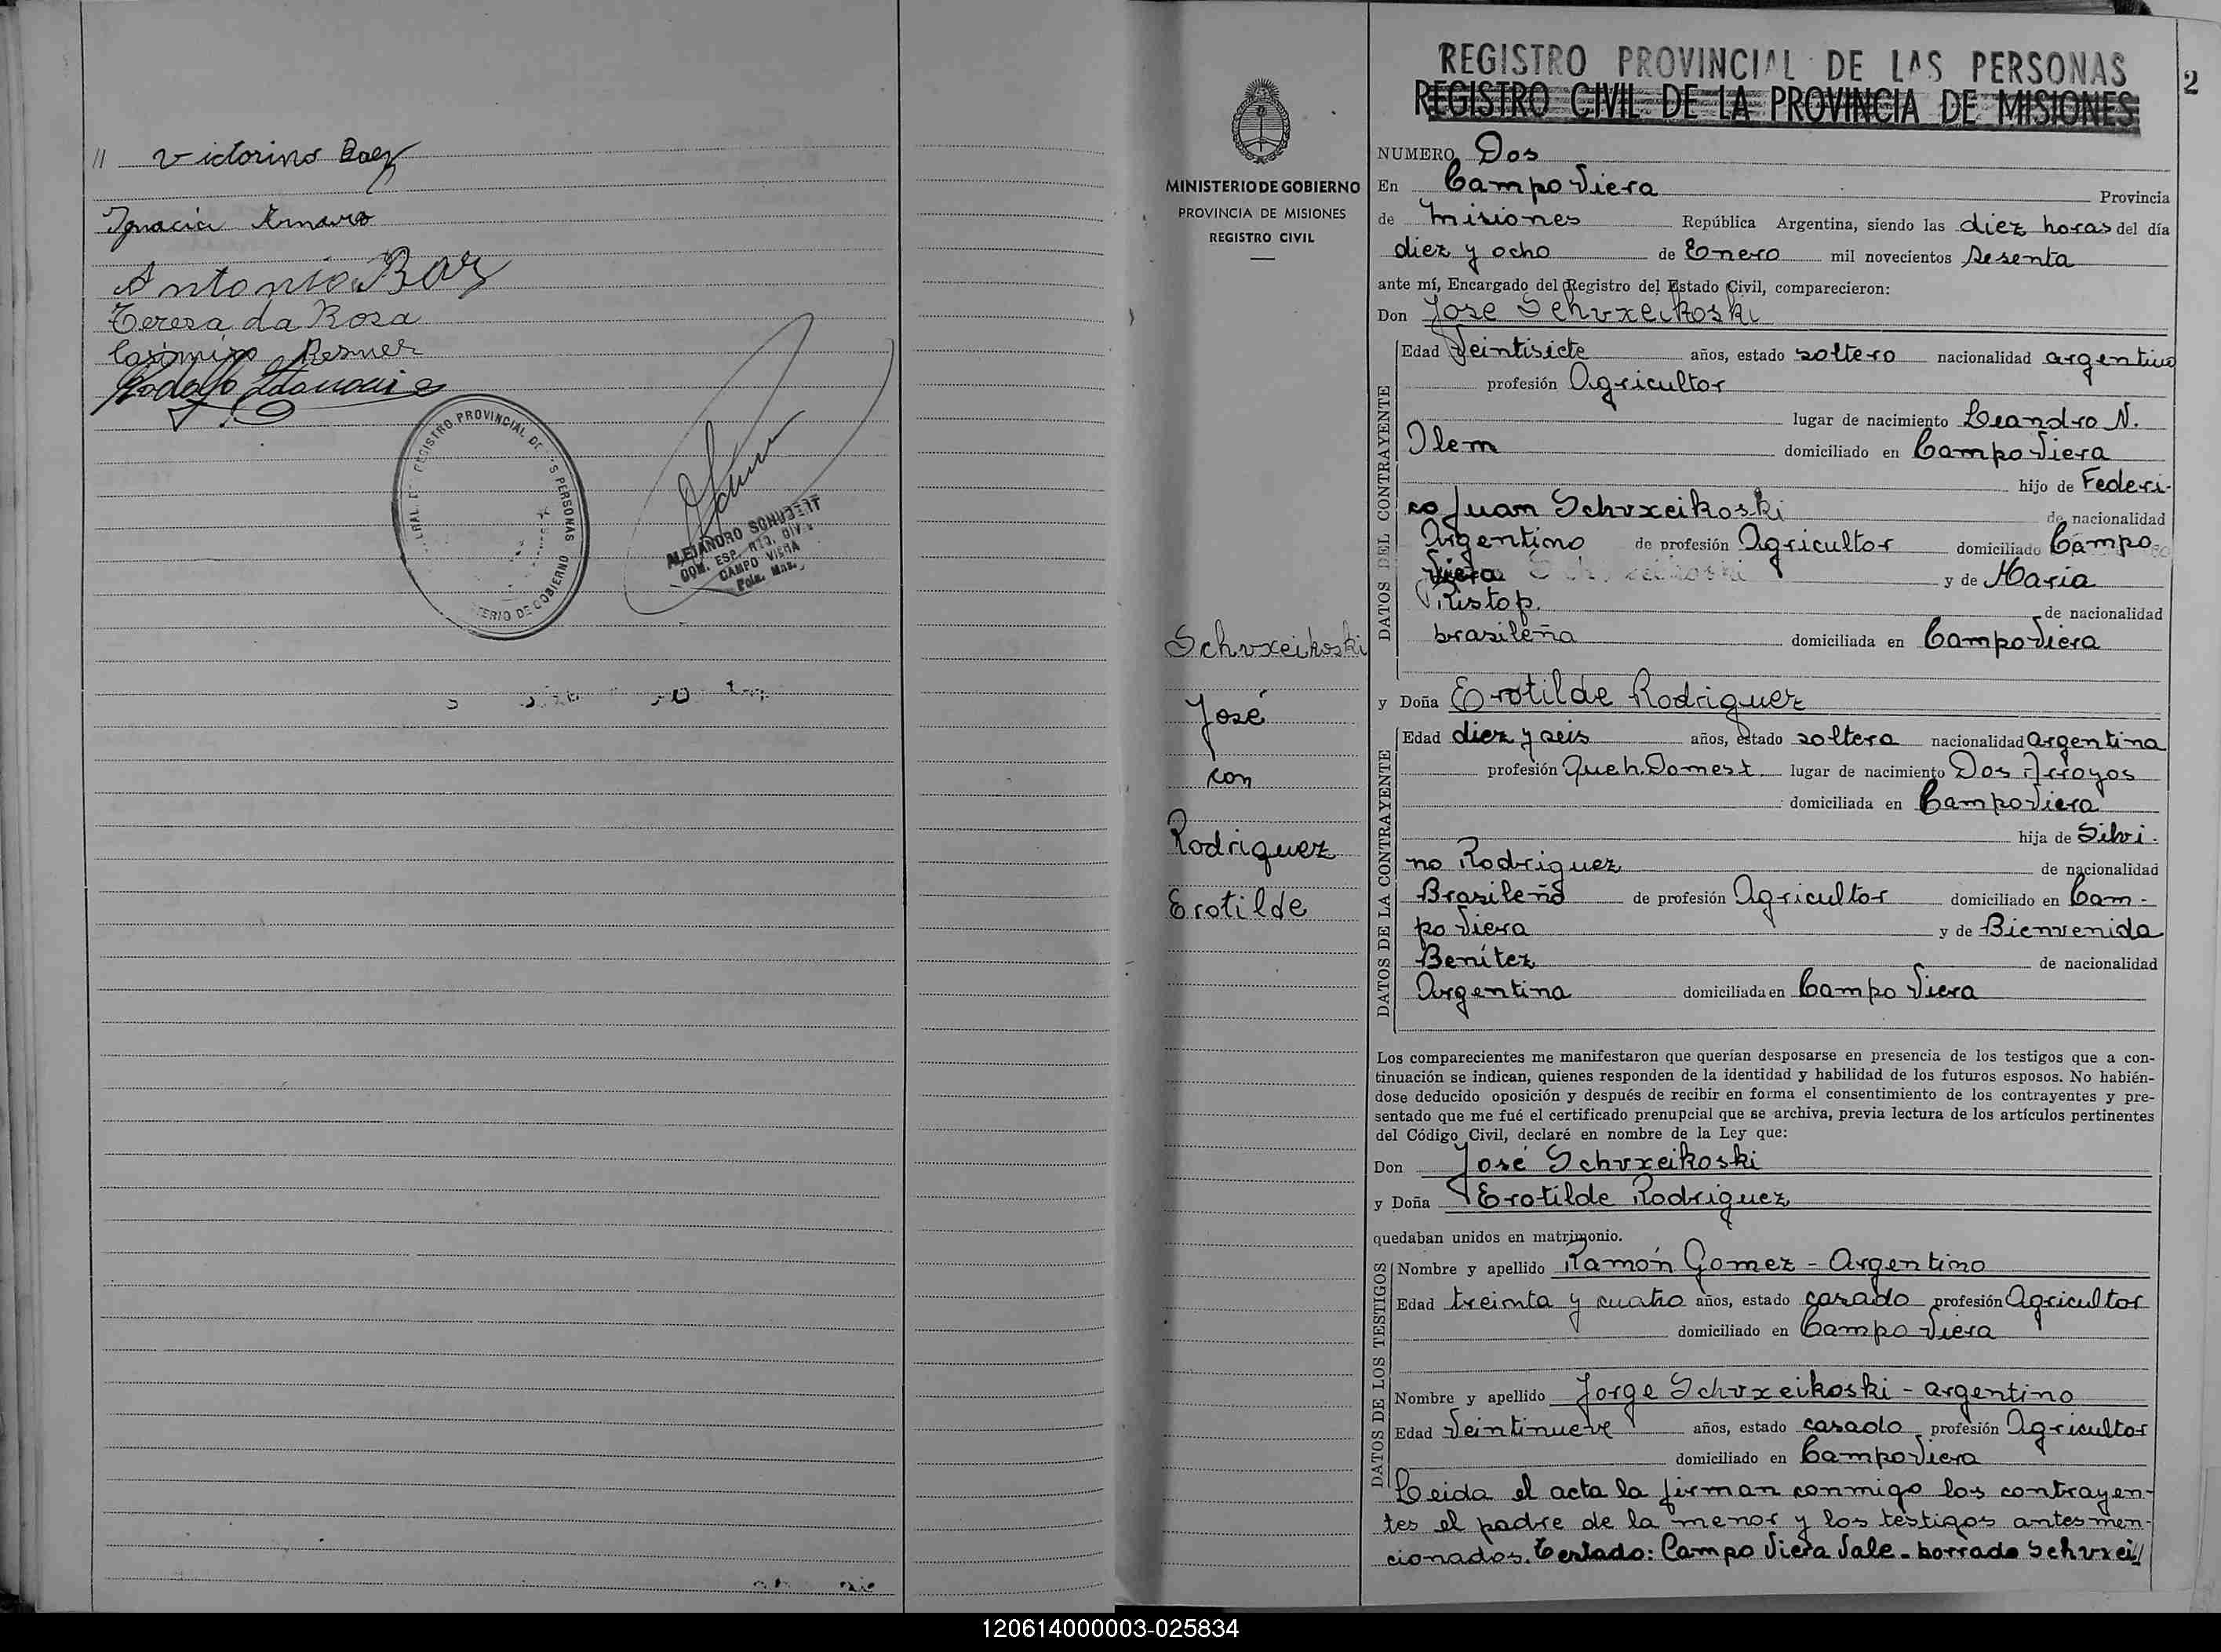 // Victorino Baez
Ignacia Amaro
Antonio Baz
Teresa da Rosa
Casimiro Resner
Rodolfo
REGISTRO PROVINCIAL DE PERSONAS
MINISTERIO DE GOBIERNO
ALEJANDRO SCHUBERT
CAMPO VIERA
MINISTERIO DE GOBIERNO
PROVINCIA DE MISIONES
REGISTRO CIVIL
Schvxeikoski
José
con
Rodriguez
Erotilde
REGISTRO PROVINCIAL DE LAS PERSONAS
2
REGISTRO CIVIL DE LA PROVINCIA DE MISIONES
NUMERO Dos
En Campo Viera Provincia
de Misiones República Argentina, siendo las diez horas del día
diez y ocho de Enero mil novecientos sesenta
ante mí, Encargado del Registro del Estado Civil, comparecieron:
Don Jose Schvxeikoski
DATOS DEL CONTRAYENTE
Edad Veintisiete años, estado soltero nacionalidad argentino
profesión Agricultor
lugar de nacimiento Leandro N.
Alem domiciliado en Campo Viera
hijo de Federi-
co Juan Schvxeikoski de nacionalidad
Argentino de profesión Agricultor domiciliado Campo
Viera y de Maria
Ristop. de nacionalidad
brasileña domiciliada en Campo Viera
y Doña Erotilde Rodriguez
DATOS DE LA CONTRAYENTE
Edad diez y seis años, estado soltera nacionalidad argentina
profesión Queh. Domest. lugar de nacimiento Dos Arroyos
domiciliada en Campo Viera
hija de Silvi-
no Rodriguez de nacionalidad
Brasileño de profesión Agricultor domiciliado en Cam-
po Viera y de Bienvenida
Benítez de nacionalidad
Argentina domiciliada en Campo Viera
Los comparecientes me manifestaron que querían desposarse en presencia de los testigos que a con-
tinuación se indican, quienes responden de la identidad y habilidad de los futuros esposos. No habién-
dose deducido oposición y después de recibir en forma el consentimiento de los contrayentes y pre-
sentado que me fué el certificado prenupcial que se archiva, previa lectura de los artículos pertinentes
del Código Civil, declaré en nombre de la Ley que:
Don José Schvxeikoski
y Doña Erotilde Rodriguez
quedaban unidos en matrimonio.
DATOS DE LOS TESTIGOS
Nombre y apellido Ramón Gomez - Argentino
Edad treinta y cuatro años, estado casado profesión Agricultor
domiciliado en Campo Viera
Nombre y apellido Jorge Schvxeikoski - argentino
Edad Veintinueve años, estado casado profesión Agricultor
domiciliado en Campo Viera
Leida el acta la firman conmigo los contrayen-
tes el padre de la menor y los testigos antes men-
cionados. Testado: Campo Viera Vale - borrado Schvxei//
120614000003-025834